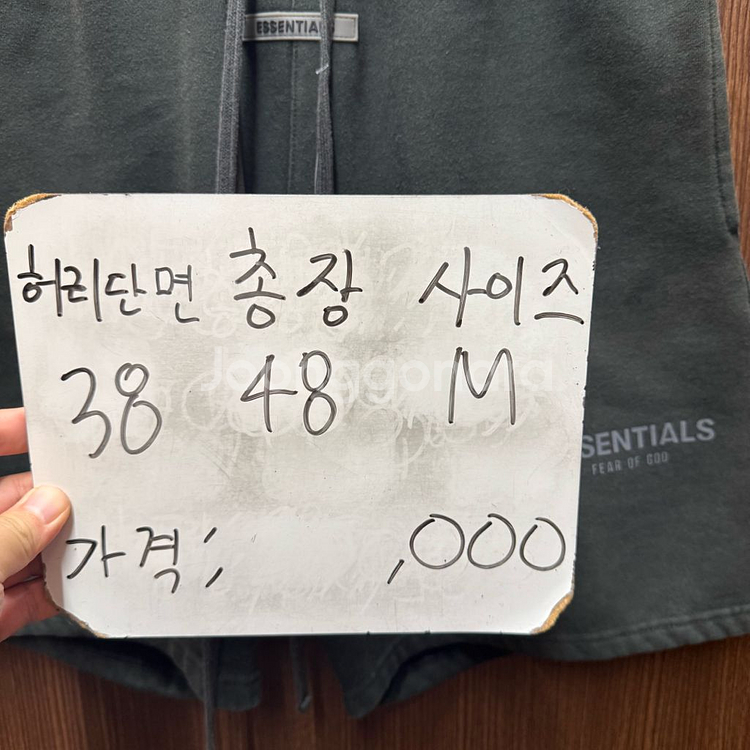 ESSENTIA
허리단면 총장 사이즈
38 48 M
Joonggonara
SENTIALS
FEAR OF GOD
가격; ,000